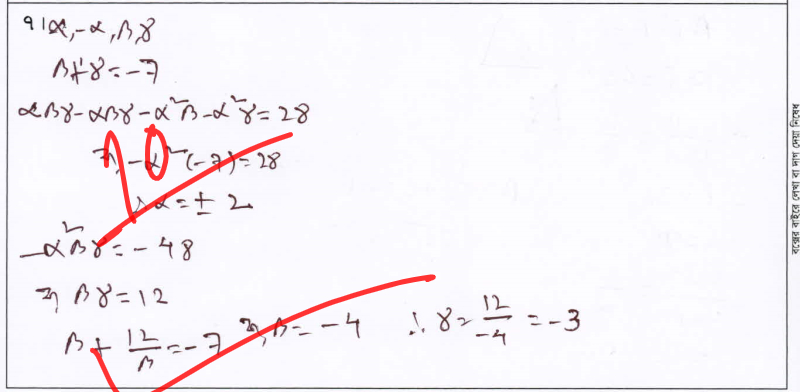 91 α, -α, β, γ
β+γ = -7
αβγ - αβγ - α²β - α²γ = 28
বা, -α²(-7) = 28
∴ α = ± 2
-α²βγ = -48
বা βγ = 12
β + 12/β = -7 বা, β = -4 ∴ γ = 12/-4 = -3
বক্সের বাইরে লেখা বা দাগ দেয়া নিষেধ